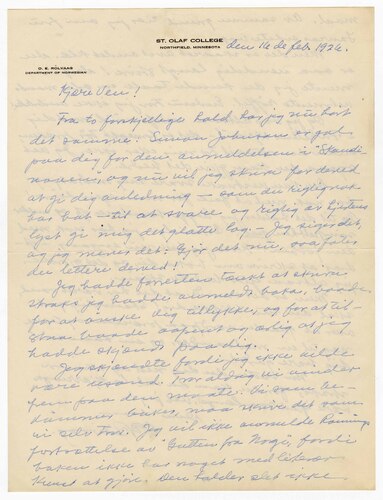 ST. OLAF COLLEGE
NORTHFIELD, MINNESOTA
O. E. ROLVAAG
DEPARTMENT OF NORWEGIAN
den 16 de feb. 1926.
Kjere Ven!
Fra to forskjellige hold har jeg nu hört
det samme. Simon Johnson er gal
paa dig for den anmeldelsen i "Skandi
naven", og nu vil jeg skrive for derved
at gi dig anledning — som du rigtignok
har bat — til at svare og rigtig av hjertens
lyst gi mig det glatte lag. — Jeg siger det,
og jeg mener det: Gjör det nu, ora
den lettere derved!
Jeg hadde forresten tænkt at skrive
straks jeg hadde anmeldt boka, baade
for at önske dig tillykke, og for at til-
staa baade aapent og ærlig at jeg
hadde skjendt paa dig.
Jeg skjendte fordi jeg ikke vilde
være uvond. Tror aldrig vi vinder
frem paa den maate. Vi som be-
dömmer böker, maa skrive det som
vi selv tror. Jeg vil ikke anmelde
fortsættelse av "Gutten fra Norge", fordi
boken ikke har noget med literær
kunst at gjöre. Den falder slet ikke